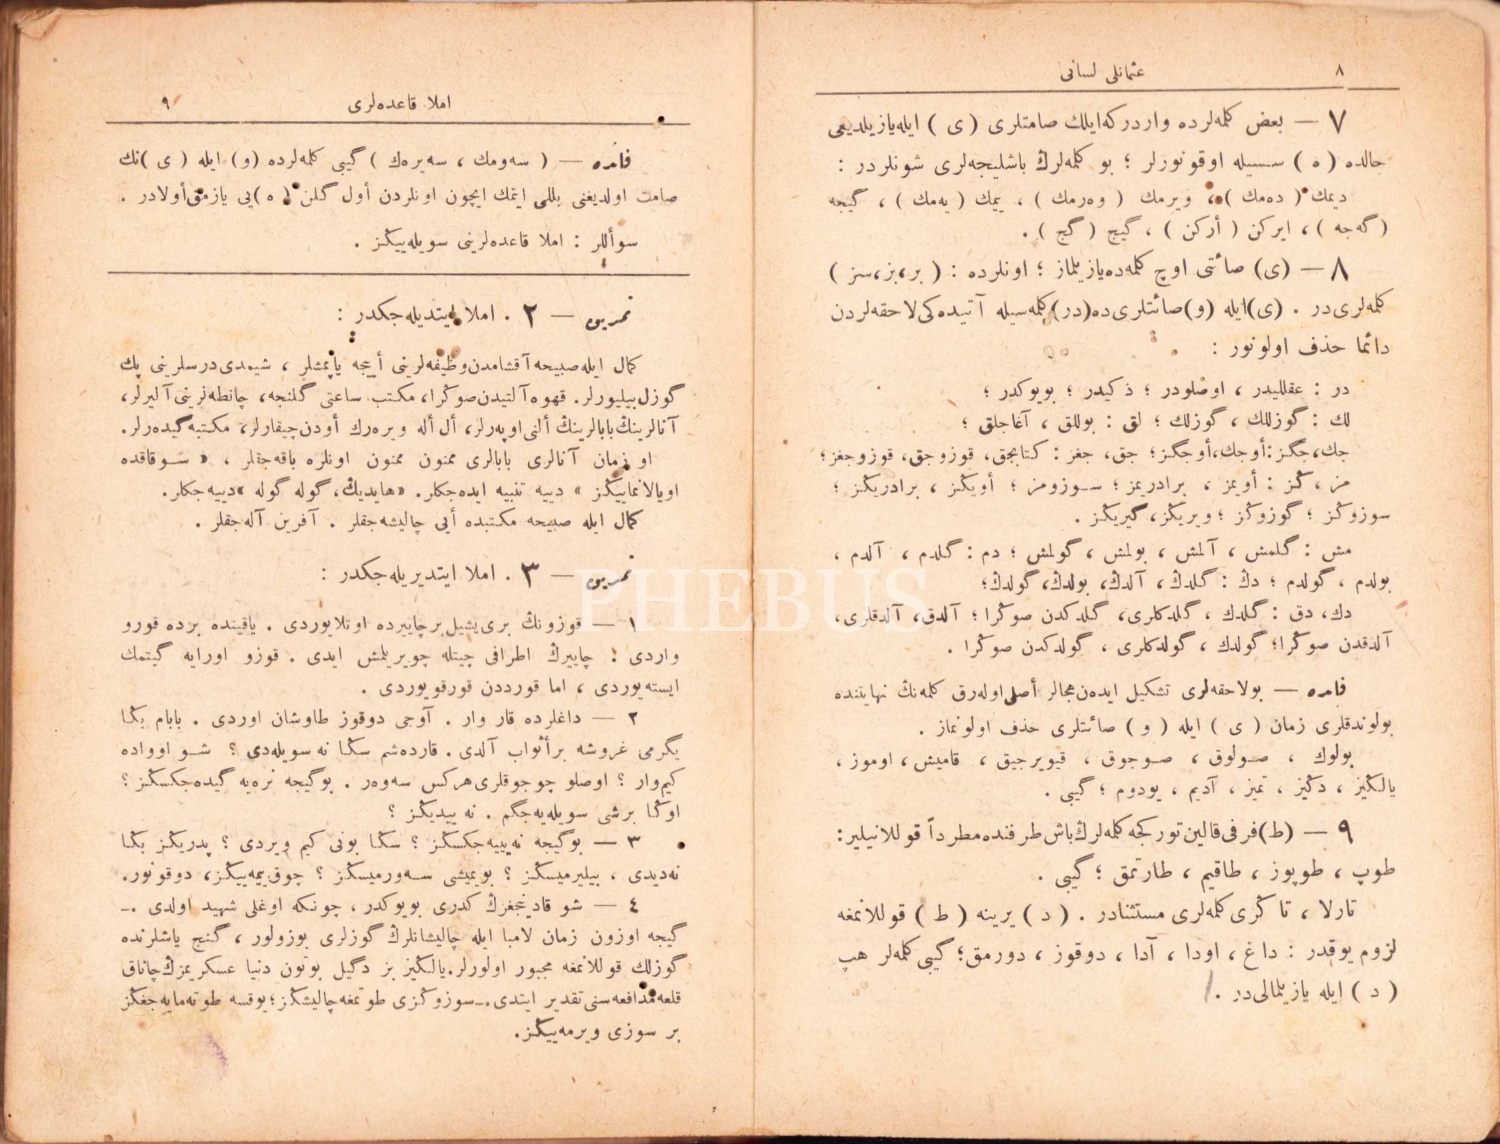 ٨
عثمانلى لسانى
٧ — بعض كلمه‌لرده واردركه ايلك صامتلرى ( ى ) ايله يازيلديغى
حالده ( ه ) سسيله اوقونورلر ؛ بو كلمه‌لرڭ باشليجه‌لرى شونلردر :
ديمك ( ده‌مك ) ، ويرمك ( وه‌رمك ) ، ييمك ( يه‌مك ) ، گيجه
( گه‌جه ) ، ايركن ( أركن ) ، گيچ ( گچ ) .
٨ — (ى) صائتى اوچ كلمه‌ده يازيلماز ؛ اونلرده : ( بر، بز، سز )
كلمه‌لرى‌در . (ى) ايله (و) صائتلرى ده (در) كلمه‌سيله آتيده‌كى لاحقه‌لردن
دائما حذف اولونور :
در : عقلليدر ، اوصلودر ؛ ذكيدر ؛ بويوكدر ؛
لك : گوزللك ، گوزلك ؛ لق : بوللق ، آغاجلق ؛
جك، جگز : أوجك، أوجگز ؛ جق، جغز : كتابجق، قوزوجق، قوزوجغز ؛
مز ، ڭز : أويمز ، برادريمز ؛ سوزومز ؛ أويڭز ، برادريڭز ؛
سوزوڭز ؛ گوزوڭز ؛ ويريڭز، گيريڭز .
مش : گلمش ، آلمش ، بولمش ، گولمش ؛ دم : گلدم ، آلدم ،
بولدم ، گولدم ؛ دڭ : گلدڭ ، آلدڭ، بولدڭ، گولدڭ؛
دك، دق : گلدك ، گلدكلرى، گلدكدن صوڭرا ؛ آلدق، آلدقلرى،
آلدقدن صوڭرا؛ گولدك ، گولدكلرى ، گولدكدن صوڭرا .
فائده — بو لاحقه‌لرى تشكيل ايده‌ن هجالر أصلى اوله‌رق كلمه‌نڭ نهايتنده
بولوندقلرى زمان ( ى ) ايله ( و ) صائتلرى حذف اولونماز .
بولوك ، صولوق ، صوجوق ، قيويرجيق ، قاميش ، اوموز ،
يالڭيز ، دڭيز ، تميز ، آديم ، يودوم ؛ گيبى .
٩ — (ط) فرفى قالين توركجه كلمه‌لرڭ باش طرفنده مطرداً قوللانيلير:
طوپ ، طوپوز ، طاقيم ، طارتمق ؛ گيبى .
تارلا ، تاڭرى كلمه‌لرى مستثنادر . ( د ) يرينه ( ط ) قوللانمغه
لزوم يوقدر : داغ ، اودا ، آدا ، دوقوز ، دورمق؛ گيبى كلمه‌لر هپ
( د ) ايله يازيلمالى‌در .
املا قاعده‌لرى
٩
فائده — ( سه‌ومك ، سه‌يره‌ك ) گيبى كلمه‌لرده (و) ايله ( ى )نك
صامت اولديغنى بللى ايتمك ايچون اونلردن أول گلن ( ه )يى يازمق أولادر .
سوأللر : املا قاعده‌لرينى سويله‌ييڭز .
تمرين — ٢ . املا ايتديله‌جكدر :
كمال ايله صبيحه آقشامدن وظيفه‌لرينى أييجه ياپمشلر ، شيمدى درسلرينى پك
گوزل بيليورلر. قهوه آلتيدن صوڭرا، مكتب ساعتى گلنجه، چانطه‌لرينى آليرلر،
آنالرينڭ بابالرينڭ ألنى اوپه‌رلر، أل أله ويره‌رك أودن چيقارلر، مكتبه گيده‌رلر.
او زمان آنالرى بابالرى ممنون ممنون اونلره باقه‌جقلر ، « سوقاقده
اويالانماييڭز » دييه تنبيه ايده‌جكلر. «هايديڭ، گوله گوله» دييه‌جكلر.
كمال ايله صبيحه مكتبده أيى چاليشه‌جقلر . آفرين آله‌جقلر .
تمرين — ٣ . املا ايتديريله‌جكدر :
١ — قوزونڭ برى يشيل بر چاييرده اوتلايوردى . ياقينده برده قورو
واردى : چاييرڭ اطرافى چيتله چويريلمش ايدى . قوزو اورايه گيتمك
ايسته‌يوردى ، اما قورددن قورقويوردى .
٢ — داغلرده قار وار . آوجى دوقوز طاوشان اوردى . بابام بڭا
يگرمى غروشه بر أثواب آلدى . قارده‌شم سڭا نه سويله‌دى ؟ شو اوواده
كيم وار ؟ اوصلو چوجوقلرى هركس سه‌وه‌ر . بو گيجه نره‌يه گيده‌جكسڭز ؟
اوڭا برشى سويله‌يه‌جگم . نه ييديڭز ؟
٣ — بو گيجه نه يييه‌جكسڭز ؟ سڭا بونى كيم ويردى ؟ پدريڭز بڭا
نه‌ديدى ، بيليرميسڭز ؟ بو يميشى سه‌ورميسڭز ؟ چوق يمه‌ييڭز، دوقونور.
٤ — شو قادينجغزڭ كدرى بويوكدر ، چونكه اوغلى شهيد اولدى .ـ
گيجه اوزون زمان لامبا ايله چاليشانلرڭ گوزلرى بوزولور ، گنج ياشلرنده
گوزلك قوللانمغه مجبور اولورلر. يالڭيز بز دگيل بوتون دنيا عسكريمزڭ چاناق
قلعه مدافعه‌سنى تقدير ايتدى.ـ سوزوڭزى طوتمغه چاليشڭز؛ يوقسه طوته‌مايه‌جغڭز
بر سوزى ويرمه‌ييڭز.
PHEBUS